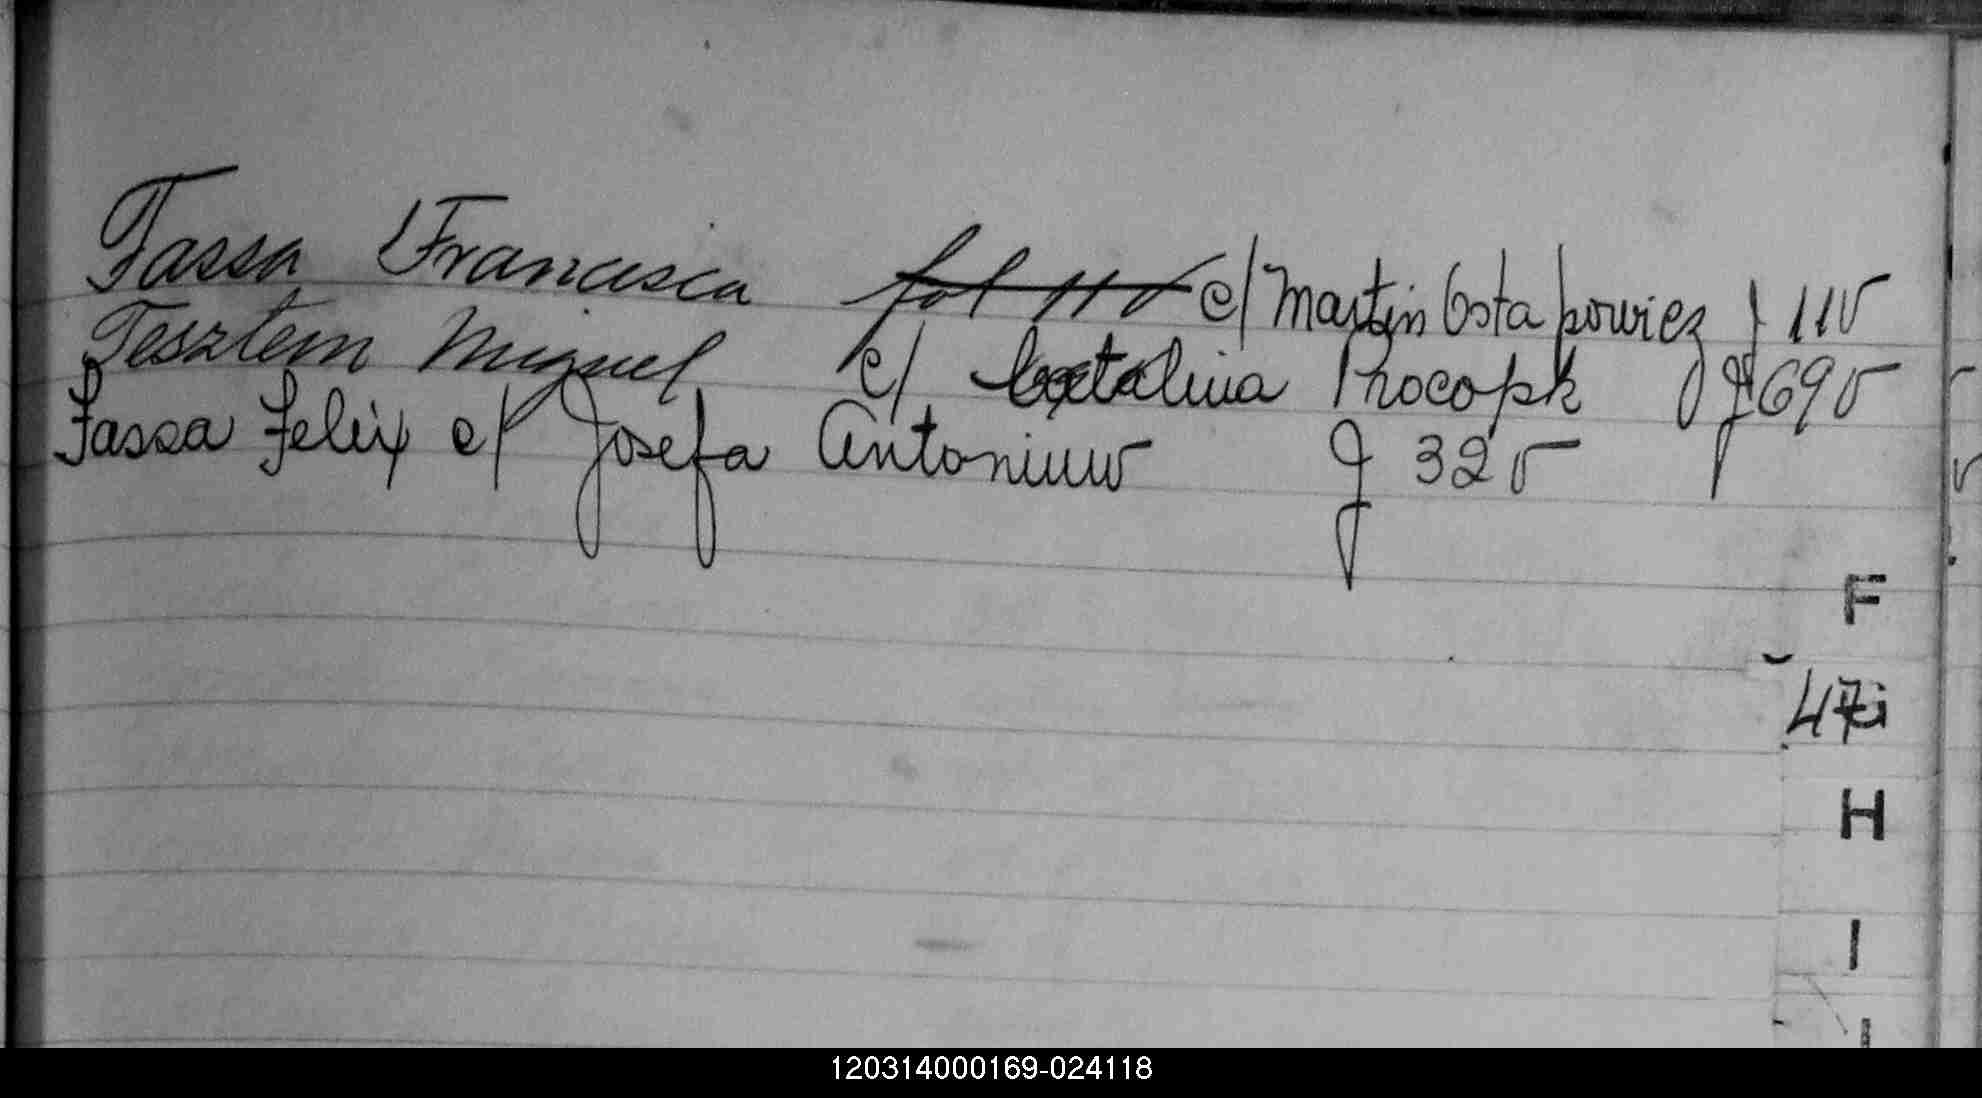 Fassa Francisca fol 11 v c/ Martin Ostapowiez f 11v
Fesztem Miguel c/ Catalina Procopk f 69v
Fassa Felix c/ Josefa Antoniuw f 32v
F
H
I
120314000169-024118